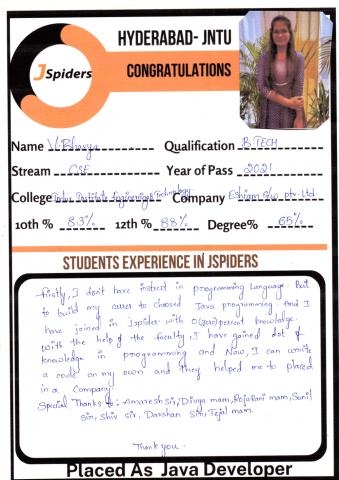 HYDERABAD- JNTU
JSpiders
CONGRATULATIONS
Name V.Bhavya Qualification B.TECH
Stream CSE Year of Pass 2021
College Institute Engineering & Technology Company S/w pvt. Ltd.
10th % 8.3% 12th % 88% Degree% 65%
STUDENTS EXPERIENCE IN JSPIDERS
Firstly, I don't have intrest in programming Language. But
to build my career to choosed Java programming. And I
have joined in Jspider with 0(zero) percent knowledge.
with the help of the faculty, I have gained alot of
knowledge in programming and Now, I can write
a code on my own and they helped me to placed
in a Company.
Special Thanks to: Amaresh sir, Divya mam, RojaRani mam, Sunil
sir, Shiv sir, Darshan Sir, Tejal mam.
Thank you.
Placed As Java Developer